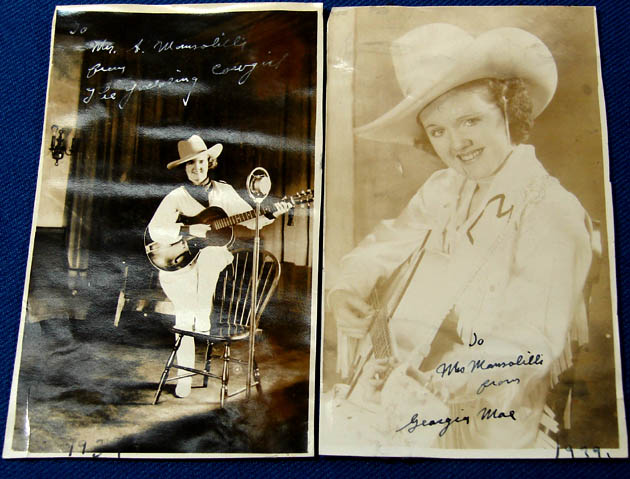 To
Mrs. A. Mansolilli
from
The Yodeling Cowgirl
193
To
Mrs Mansolilli
from
Georgia Mae
1939.